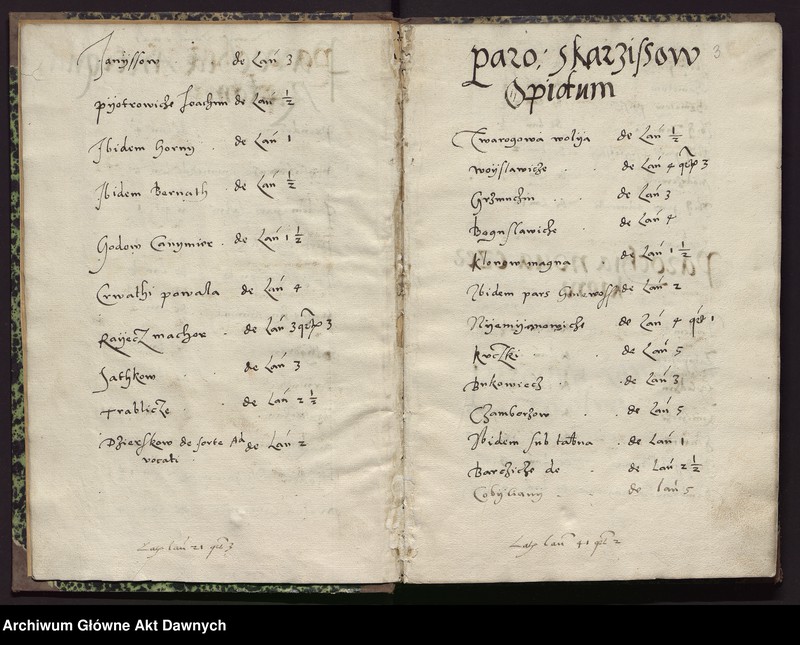 Janyssow de Lan̄ 3
pyotrowicze Joachim de Lan̄ ½
Ibidem Horny . de Lan̄ 1
Ibidem Bernath . de Lan̄ ½
Godow Canymiee . de Lan̄ 1 ½
Crwathi powala de Lan̄ 4
Rayecz machor . de Lan̄ 3 qrt 3
Jathkow . de Lan̄ 3
Trablicze . de Lan̄ 2 ½
Dzierskow de sorte Ad de Lan̄ 2
vocati
Lan̄ 21 qrt 3
3
paro: skarzissow
Opidum
Twarogowa wolya de Lan̄ ½
Woyslawicze . de Lan̄ 4 qrt 3
Grzmuchin . . de Lan̄ 3
Boguslawicze de Lan̄ 4
Klonow magna . de Lan̄ 1 ½
Ibidem pars Gniewoss de Lan̄ 2
Nyemyanowicze de Lan̄ 4 qrt 1
Kuczki . . de Lan̄ 5
Bukowiecz . . de Lan̄ 3
Czamborzow . . de Lan̄ 5
Ibidem sub tabna . de Lan̄ 1
Barczicze de . de Lan̄ 2 ½
Cobyliany . . de Lan̄ 5
Lan̄ 41 qrt 2
Archiwum Główne Akt Dawnych